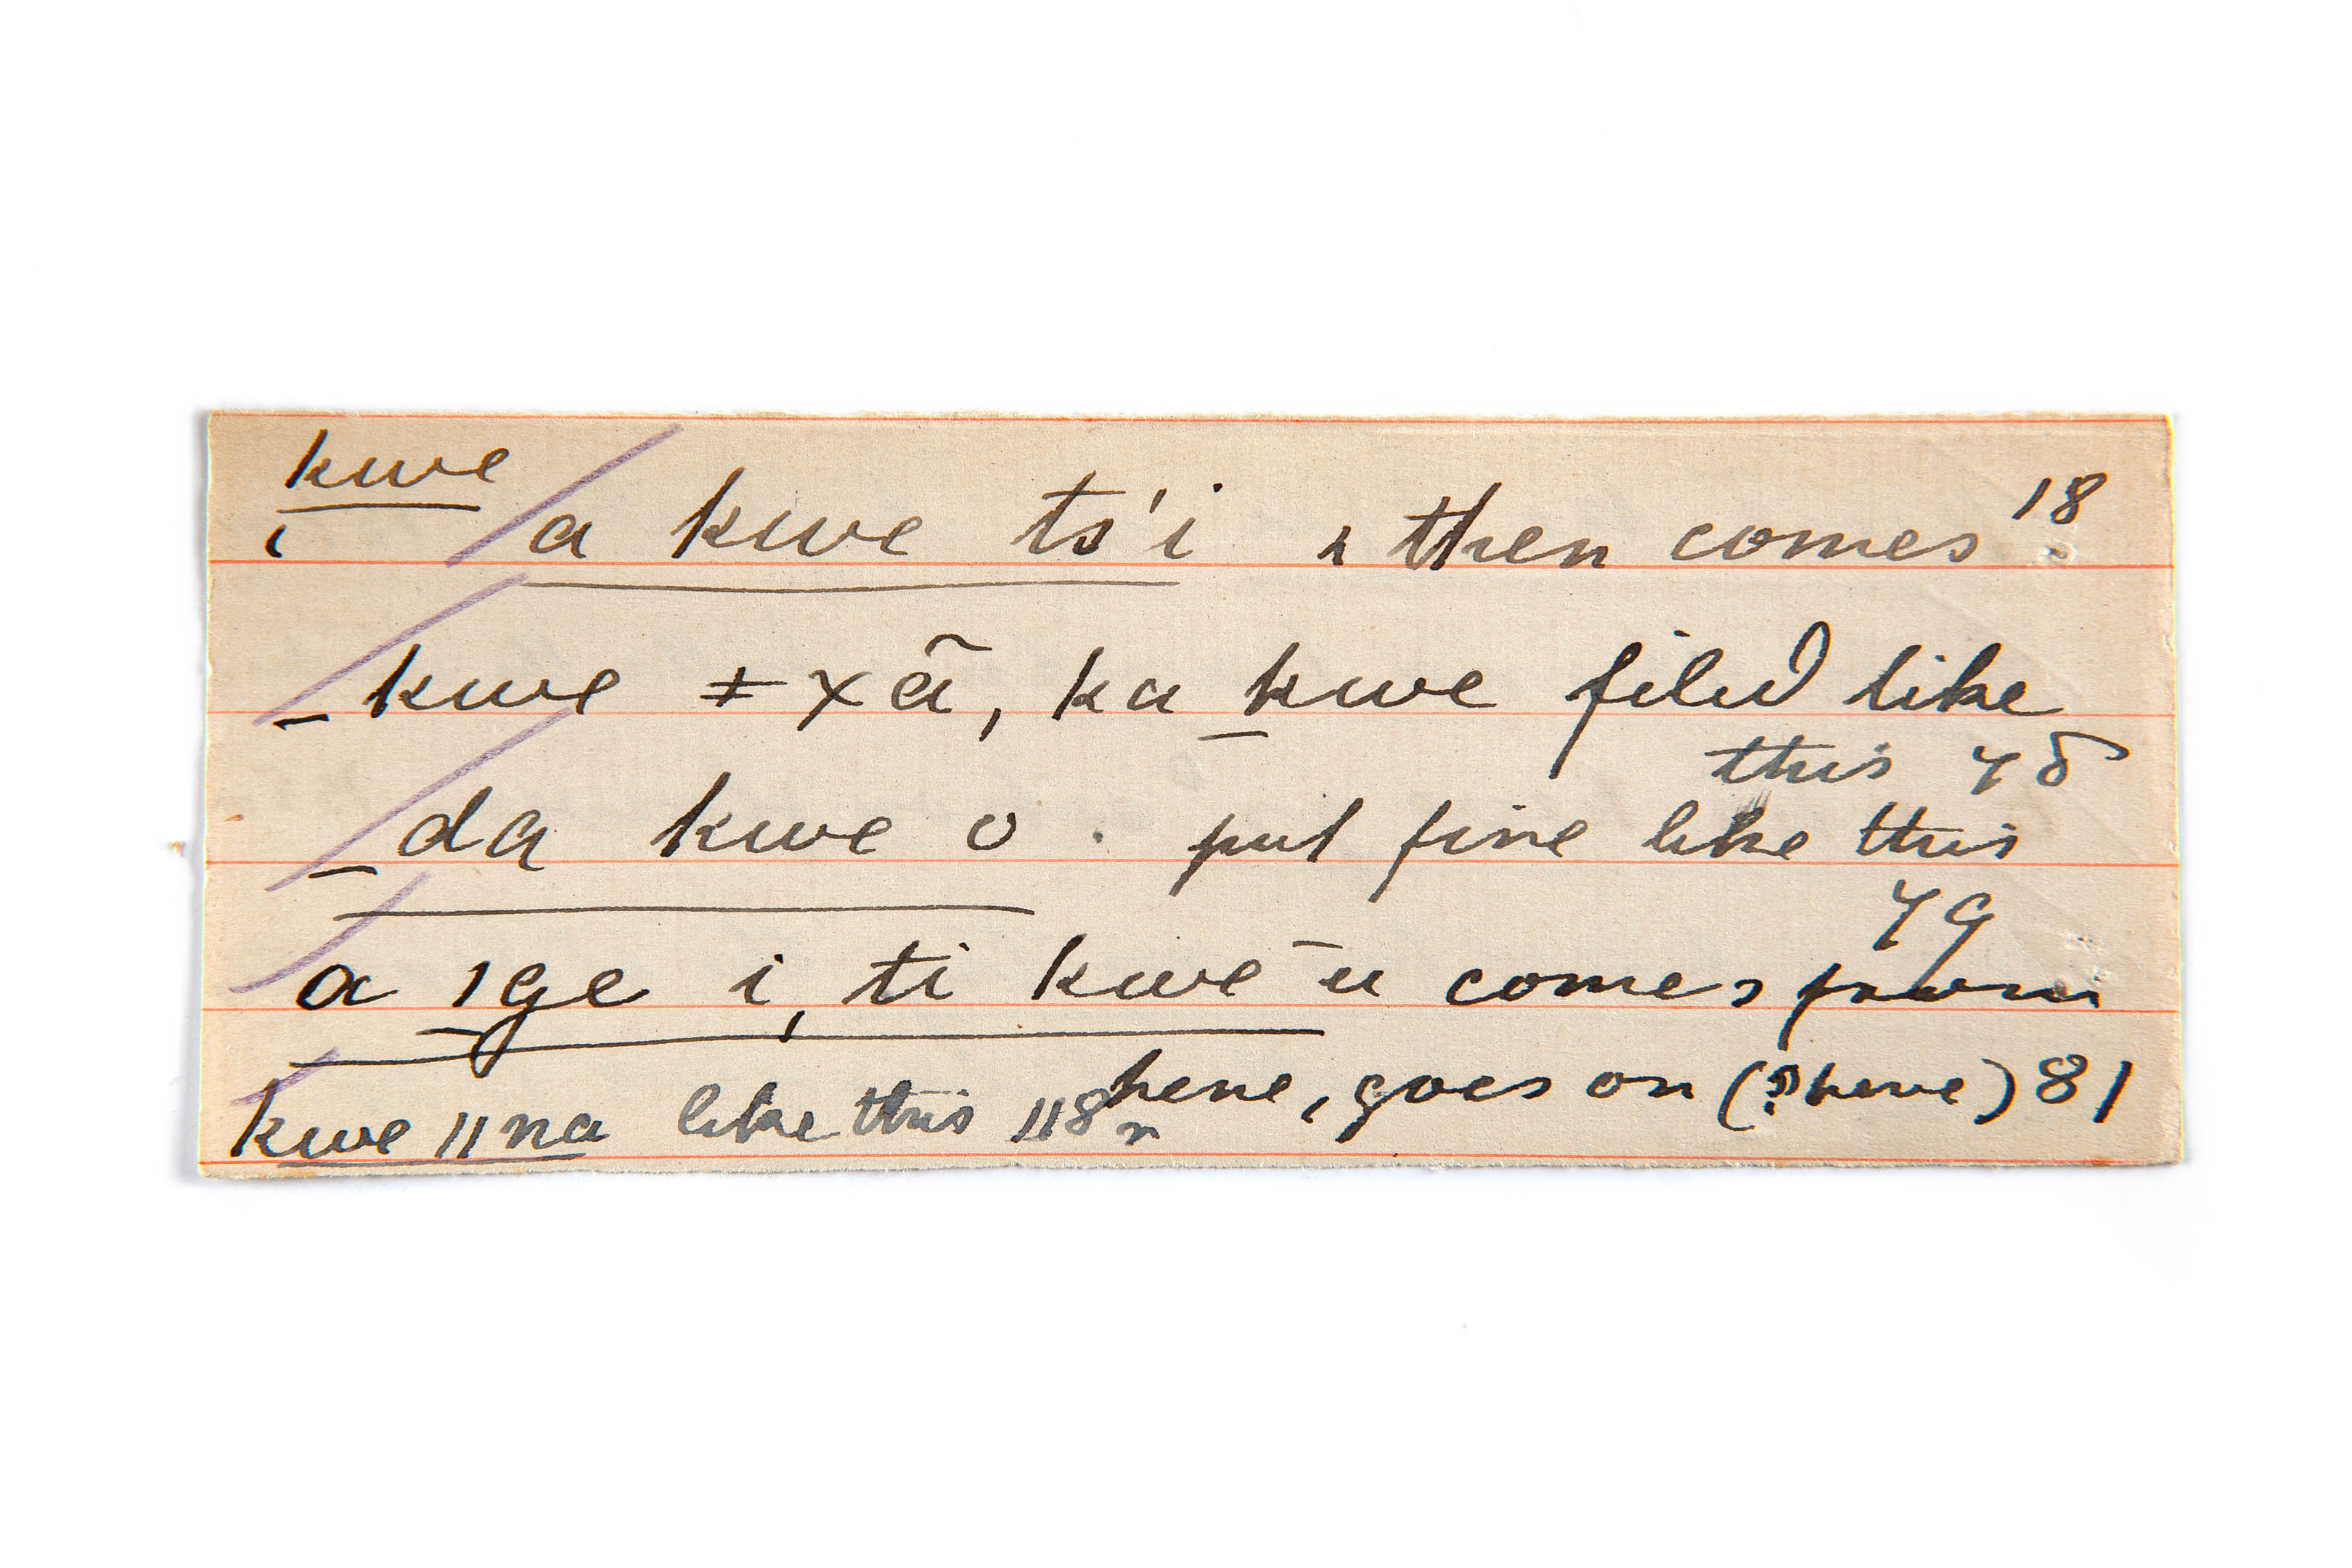 kwe
a kwe ts'i & then comes 18
_kwe ǂxã, ka kwe like
this 78
_da kwe o. put fire like this
79
a ǀge i, ti kwe ū comes from
here, goes on (? here) 81
kwe ǁna like this 118